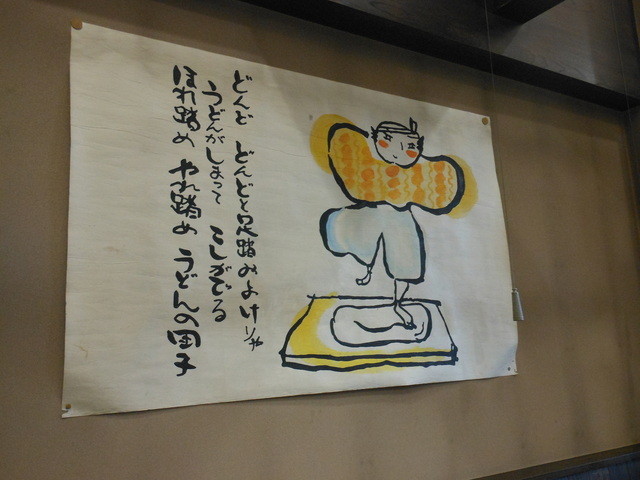 どんど どんどと足踏みよけりゃ
うどんがしまって こしがでる
ほれ踏め やれ踏め うどんの団子